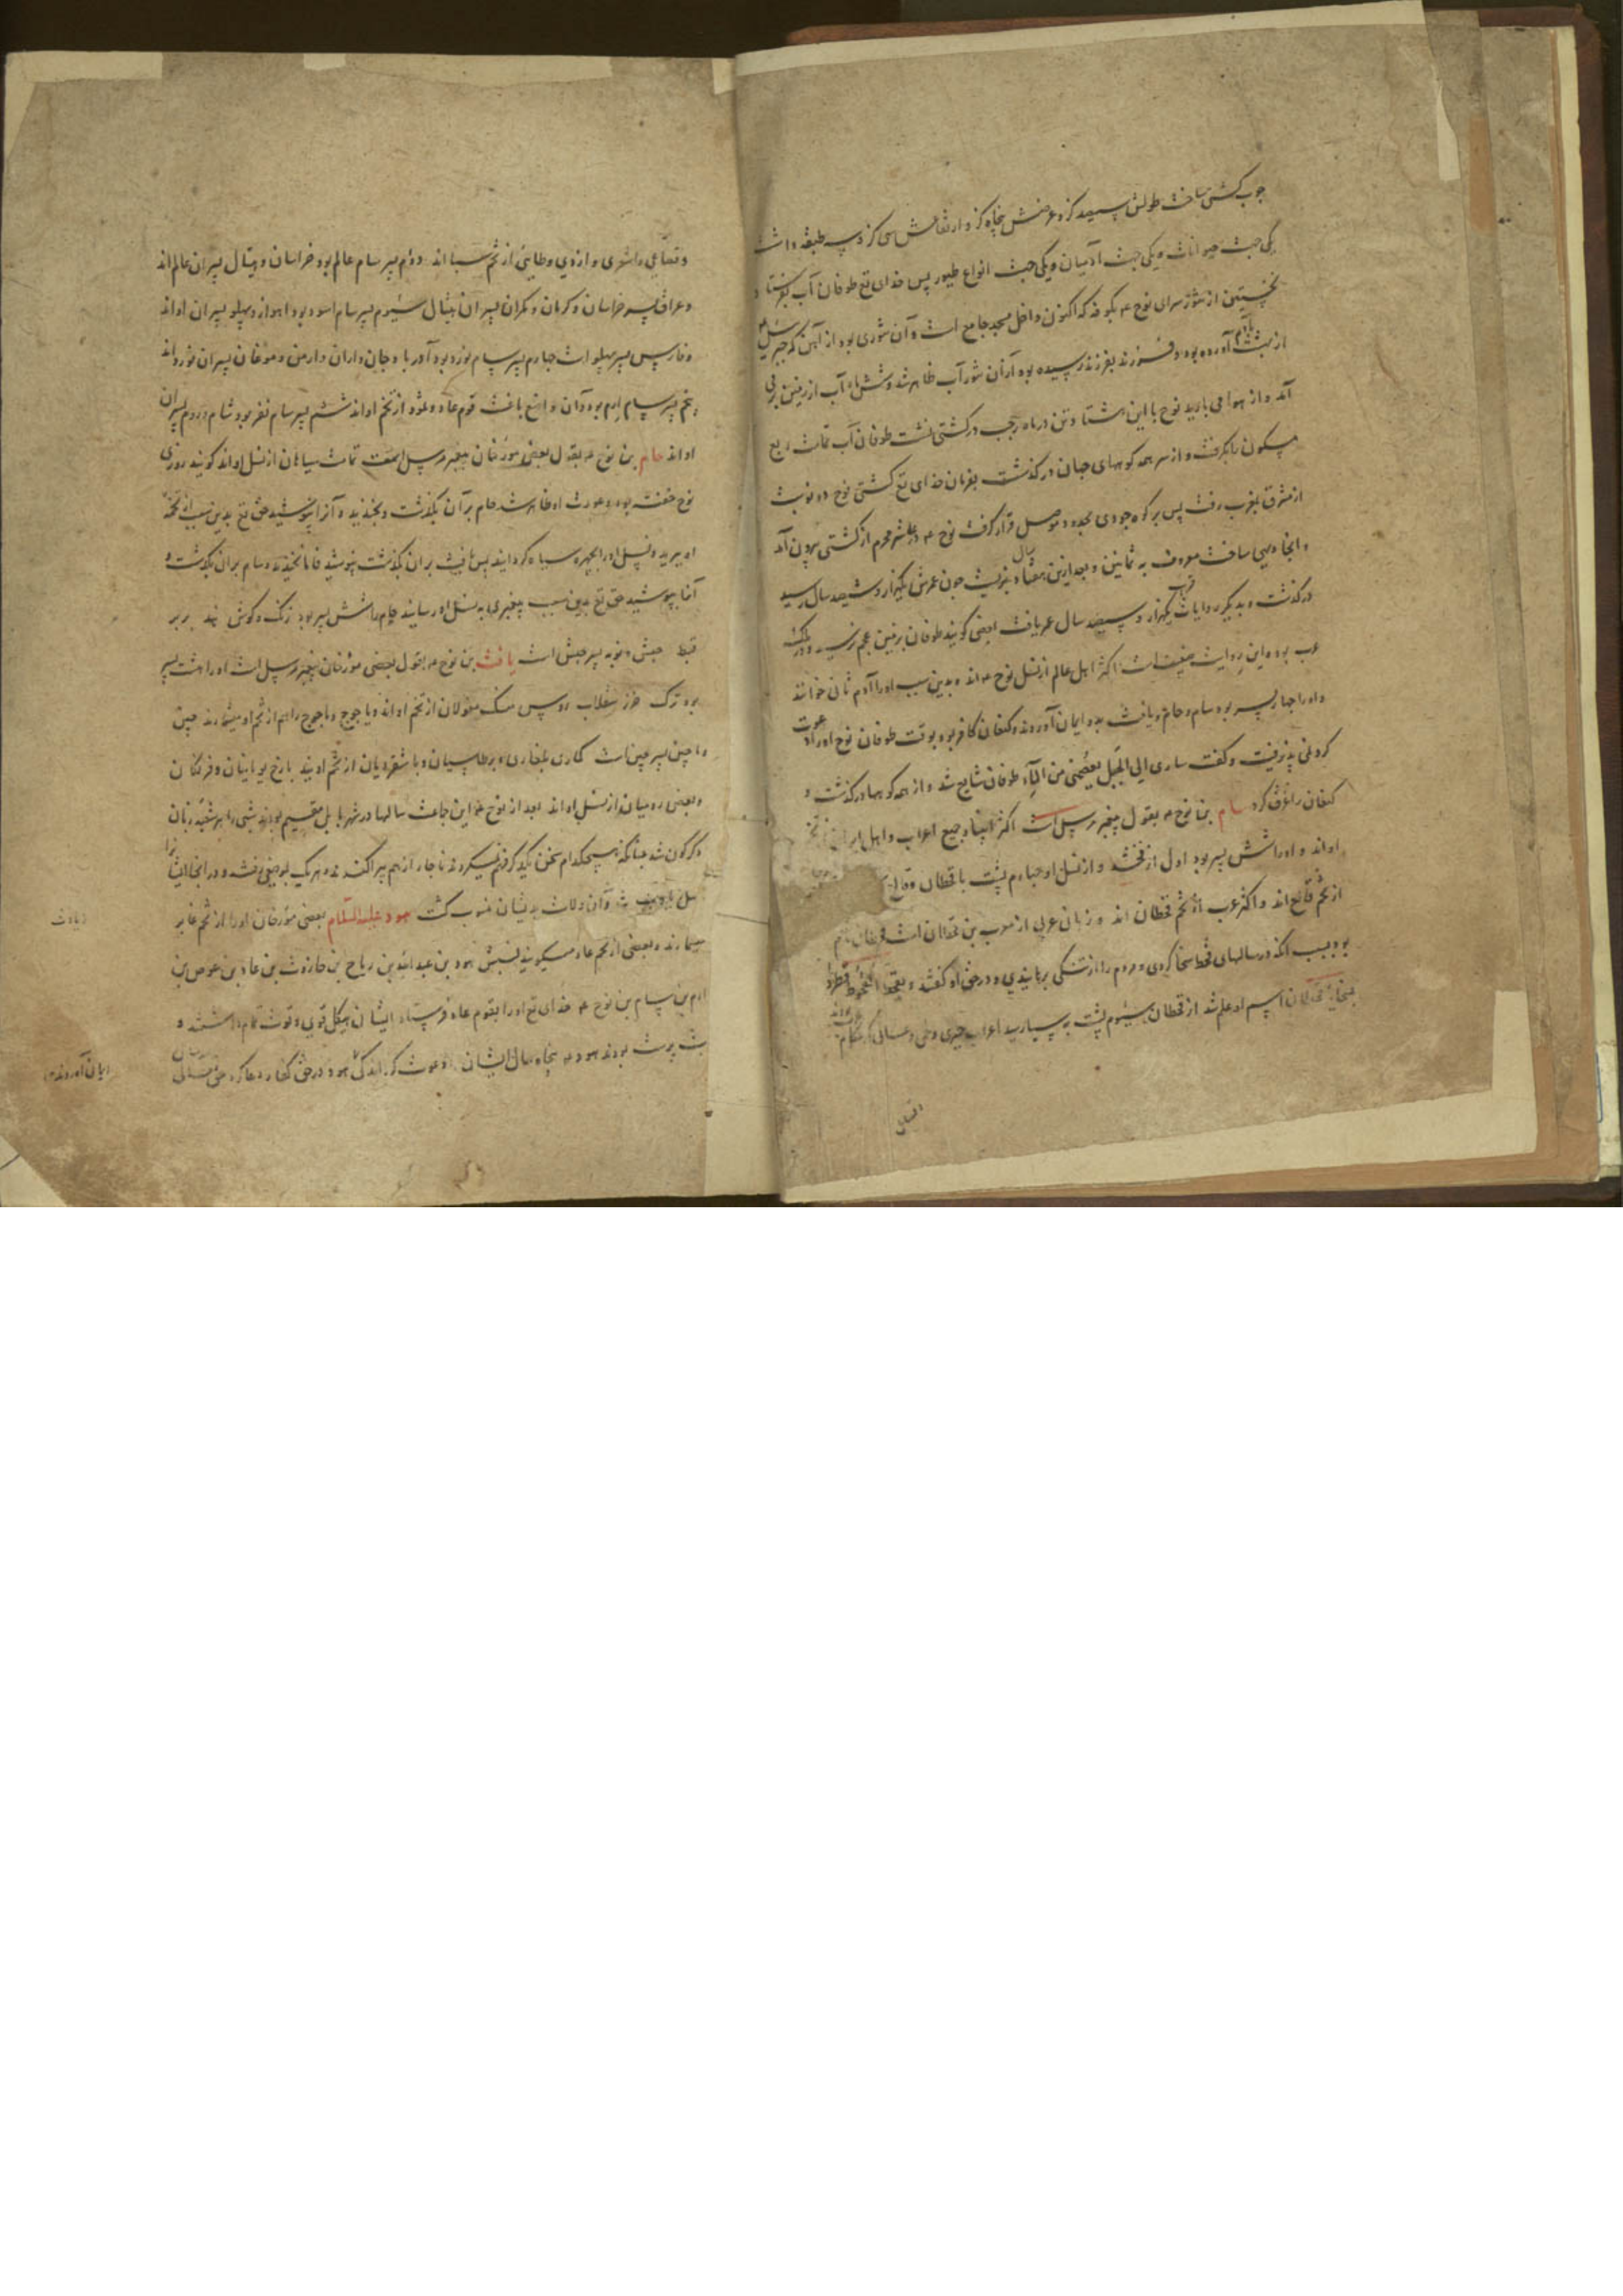 چوب کشتی ساخت طولش سیصد کز و عرضش پنجاه کز و ارتفاعش سی کز و سه طبقه داشت
یکی جهت حیوانات و یکی جهت آدمیان و یکی جهت انواع طیور پس خدای تع طوفان آب بفرستاد و
نخستین از تنور سرای نوح ع بکوفه که اکنون داخل مسجد جامع است و آن تنوری بود از آهن که جبرئیل
از بهشت بآدم آورده بود و فرزند بفرزند رسیده بود از آن تنور آب ظاهر شد و شش ماه آب از زمین بر می
آمد و از هوا می بارید نوح با این هشتاد تن در ماه رجب در کشتی نشست طوفان آب تمامت ربع
مسکون را بکرفت و از سر همه کوههای جهان در کذشت بفرمان خدای تع کشتی نوح دو نوبت
از مشرق بمغرب رفت پس بر کوه جودی بحدود موصل قرار کرفت نوح ع در عاشر محرم از کشتی بیرون آمد
و آنجا دیهی ساخت معروف به ثمانین و بعد ازین هفتاد سال بزیست چون عمرش بیکهزار و ششصد سال رسید
درکذشت و بدیکر روایات قریب یکهزار و سیصد سال عمر یافت بعضی کویند طوفان بزمین عجم نرسید و در ملک
عرب بود و این روایت ضعیفست اکثر اهل عالم از نسل نوح ع اند و بدین سبب او را آدم ثانی خوانند
و او را چهار پسر بود سام و حام و یافث بدو ایمان آوردند و کنعان کافر بود بوقت طوفان نوح او را دعوت
کرد نمی پذیرفت و گفت ساوی الی الجبل یعصمنی من الماء طوفان شایع شد و از همه کوهها درکذشت و
کنعان را غرق کرد سام بن نوح ع بقول پیغمبر مرسل است اکثر انبیا و جمیع اعراب و اهل ایران از تخم
اواند و او را شش پسر بود اول ارفخشد و از نسل او چهارم پشت با قحطان و فالغ
از تخم فالغ اند و اکثر عرب از تخم قحطان اند و زبان عربی از یعرب بن قحطان است قحطان نام
بود بسبب آنکه در سالهای قحط سخا کردی و مردم را از تنگی برهانیدی و در حق او کفتند
چنانک قحطان اسم او علم شد از قحطان سیوم پشت به سبا رسید اعراب حمیری و طی و غسانی
و قضاعی و اشعری و ازدی و طایی از تخم سبا اند دوم پسر سام عالم بود خراسان و هیتال پسران عالم اند
و عراق پسر خراسان و کرمان و مکران پسران هیتال سیوم پسر سام اسود بود اهواز و پهلو پسران اواند
و فارس پسر پهلو است چهارم پسر سام نوذر بود آذرباد جان و اران و ارمن و موغان پسران نوذراند
پنجم پسر سام ارم بود قوم عاد و ثمود از تخم اواند ششم پسر سام نفر بود شام و روم پسران
اواند حام بن نوح ع بقول بعضی مورخان پیغمبر مرسل است تمامت سیاهان از نسل اواند کویند روزی
نوح خفته بود و عورت او ظاهر شد حام بر آن بگذشت و بخندید و آنرا نپوشید حق تع بدین سبب از تخمه
او ببرید و نسل او را چهره سیاه کردانید پس یافث بر آن بگذشت نپوشید فاما نخندید و سام بر آن بگذشت و
آنرا بپوشید حق تع بدین سبب پیغمبری به نسل او رسانید حام را شش پسر بود زنک و کوش هند بربر
قبط حبش و نوبه پسر حبش است یافث بن نوح ع بقول بعضی مورخان پیغمبر مرسل است او را هشت پسر
بود ترک خزر سقلاب روس منسک مغولان از تخم اواند و یاجوج و ماجوج را هم از تخم او میشمارند چین
و ماچین پسر چین است کماری بلغاری و برطاسیان و باشقردیان از تخم اویند بارخ یونانیان و فرنکان
و بعضی رومیان از نسل اواند بعد از نوح ع این جماعت سالها در شهر بابل مقیم بودند شبی را بر شصت زبان
دگرگون شد چنانکه هیچکدام سخن یکدیگر فهم نمیکردند ناچار از هم پراکنده شدند و هر یک بموضعی رفتند و در آنجا ایشانرا
نسل بادید شد و آن ولایت بدیشان منسوب کشت هود علیه السلام بعضی مورخان او را از تخم عابر
میشمارند و بعضی از تخم عاد میکویند نسبش هود بن عبد الله بن رباح بن حارث بن عاد بن عوص بن
ارم بن سام بن نوح ع خدای تع او را بقوم عاد فرستاد ایشان هیکل قوی و قوت تمام داشتند و
بت پرست بودند هود ع پنجاه سال ایشان را دعوت کرد اندکی هود در حق کفار دعا کرد حق تعالی
زیادت
ایمان آوردند